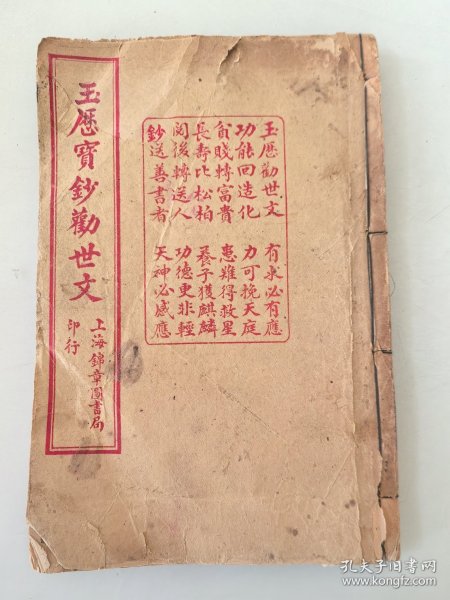 玉歷寶鈔勸世文
上海錦章圖書局
印行
玉歷勸世文 有求必有應
功能回造化 力可挽天庭
貧賤轉富貴 患難得救星
長壽比松柏 養子獲麒麟
閱後轉送人 功德更非輕
鈔送善書者 天神必感應
孔夫子旧书网
www.kongfz.com